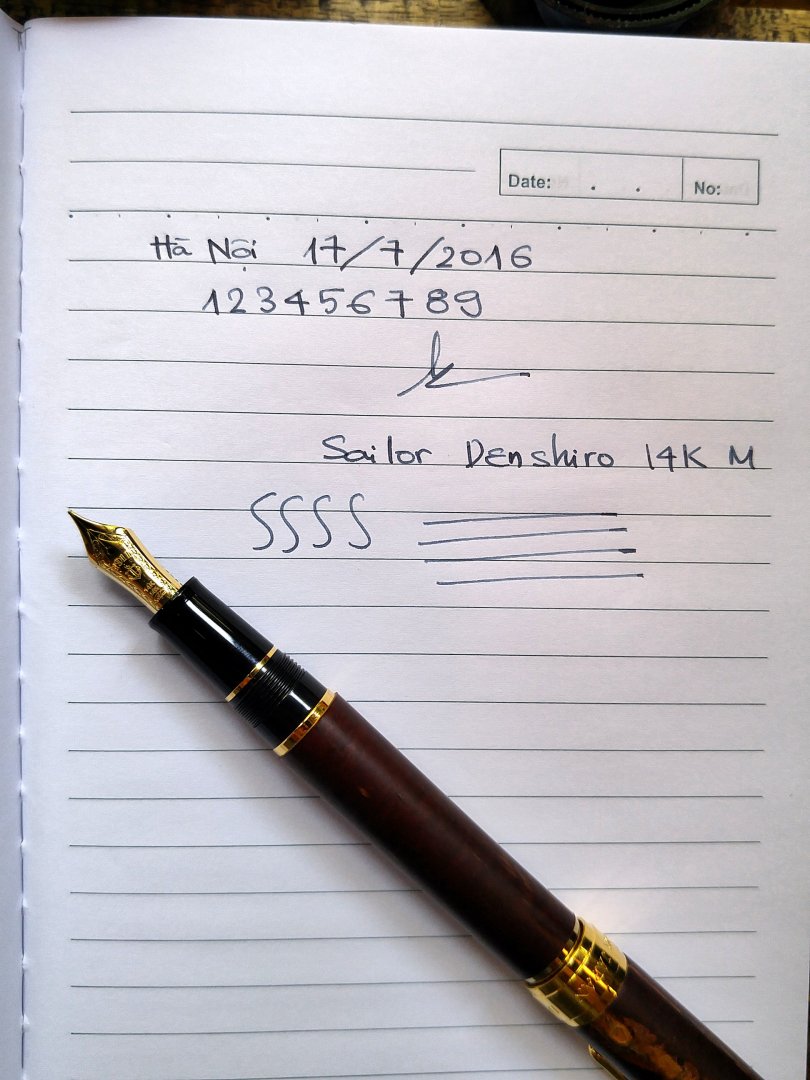 Date: . . No:
Hà Nội 17/7/2016
123456789
Sailor Denshiro 14K M
SSSS